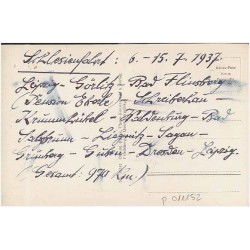 Schlesienfahrt: 6.-15.7.1937.
Leipzig - Görlitz - Bad Flinsberg -
(Pension Eberle) - Schreiberhau -
Krummhübel - Waldenburg - Bad
Salzbrunn - Liegnitz - Sagan -
Grünberg - Guben - Dresden - Leipzig.
(Gesamt: 970 km!)
p 011152